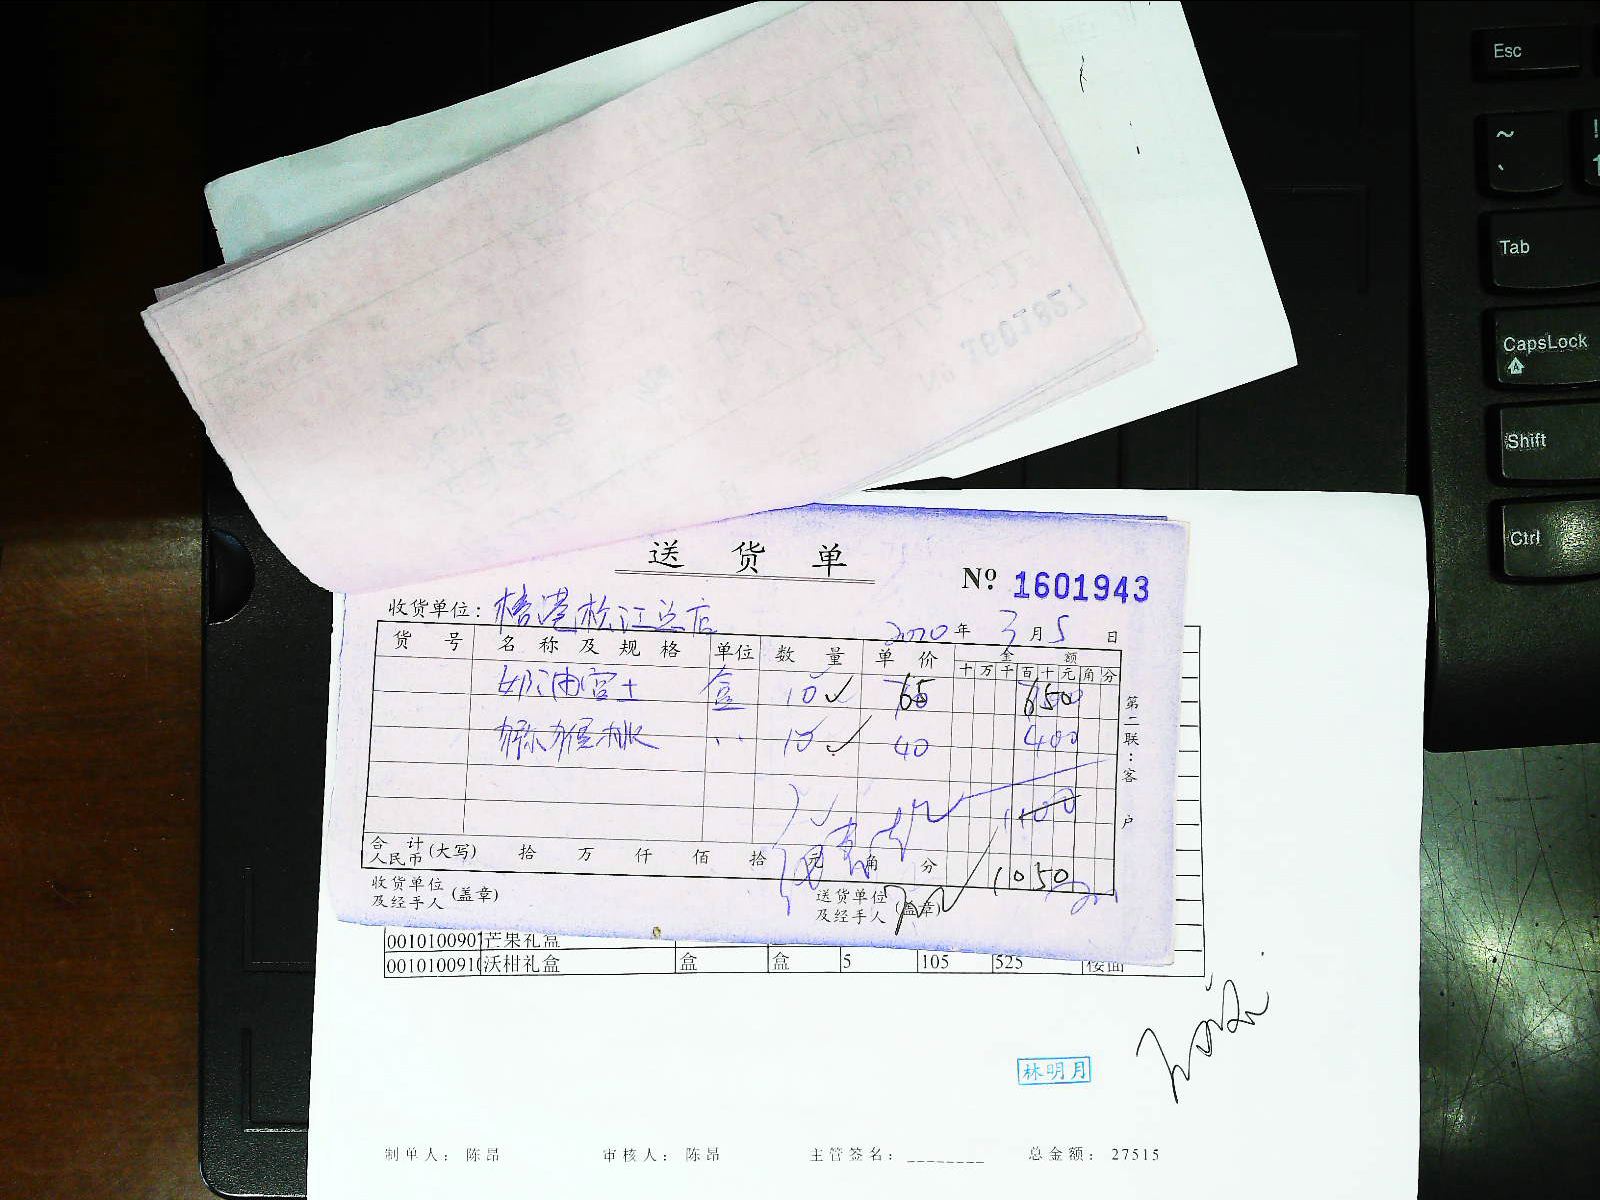 Esc
~
!
Tab
CapsLock
Shift
Ctrl
送货单
№ 1601943
收货单位:
2020年3月5日
货号 名称及规格 单位 数量 单价 金额
十万千百十元角分
奶油富士 盒 10 65 650
猕猴桃 〃 10 40 400
1100
合计人民币(大写) 拾 万 仟 佰 拾 元 角 分 1050
收货单位及经手人(盖章) 送货单位及经手人(盖章)
第二联:客户
001010090 芒果礼盒
0010100910 沃柑礼盒 盒 盒 5 105 525 楼面
林明月
制单人: 陈昂 审核人: 陈昂 主管签名: ________ 总金额: 27515